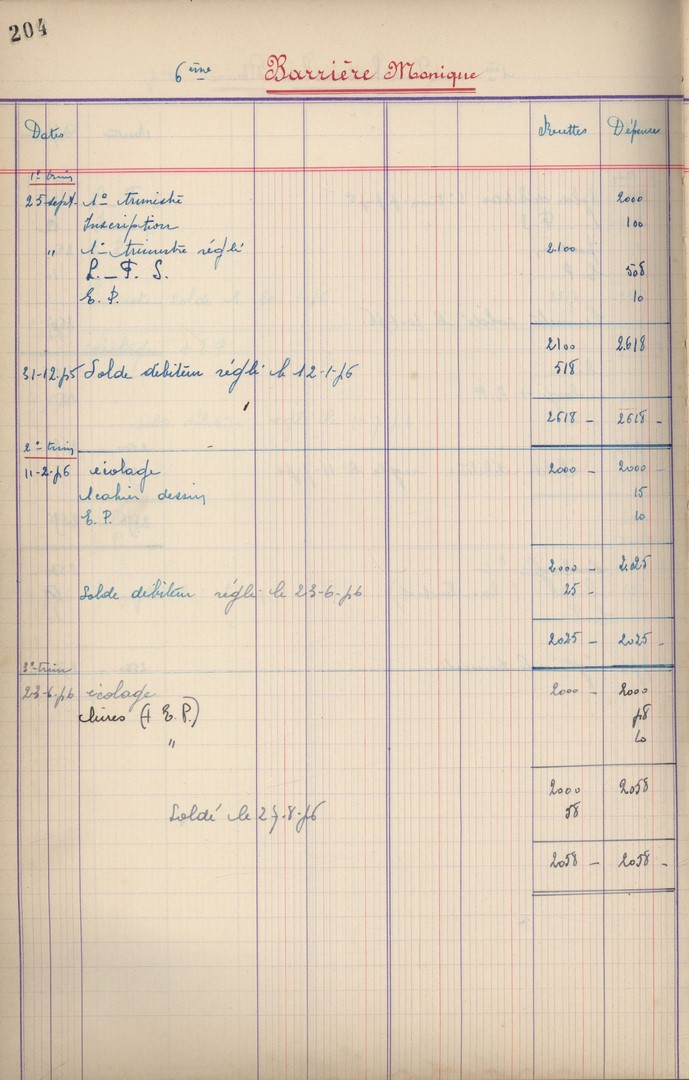 204
6ème Barrière Monique
Dates Recettes Dépenses
1° trim
25-sept. 1° trimestre 2000
Inscription 100
" 1° trimestre réglé 2100
L. - F. S. 508
E. P. 10
2100 2618
31-12-55 Solde débiteur réglé le 12-1-56 518
2618 - 2618 -
2° trim
11-2-56 écolage 2000 - 2000
1 cahier dessin 15
E. P. 10
2000 - 2025
Solde débiteur réglé le 23-6-56 25 -
2025 - 2025 -
3° trim
23-6-56 écolage 2000 - 2000
livres (+ E. P.) 48
" 10
2000 2058
Soldé le 27.8.56 58
2058 - 2058 -